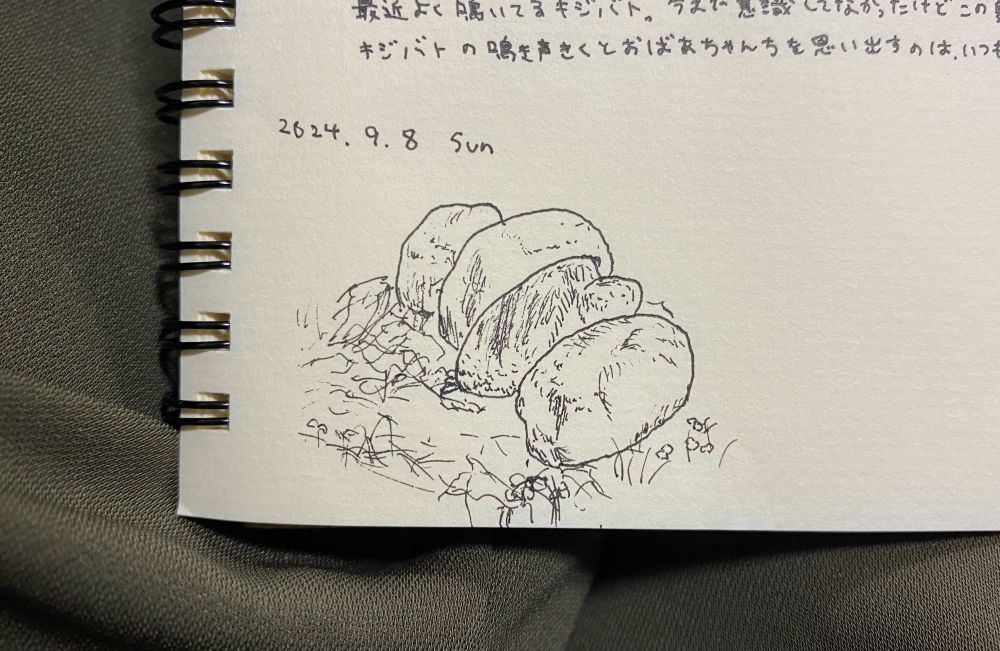 最近よく鳴いてるキジバト。今まで意識してなかったけどこの
キジバトの鳴き声きくとおばあちゃんちを思い出すのは、いつも
2024. 9. 8 Sun